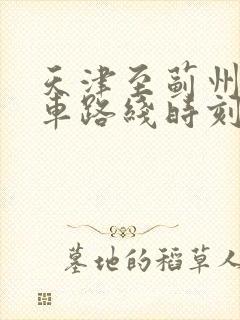 天津至蓟州
车路线时刻
墓地的稻草人